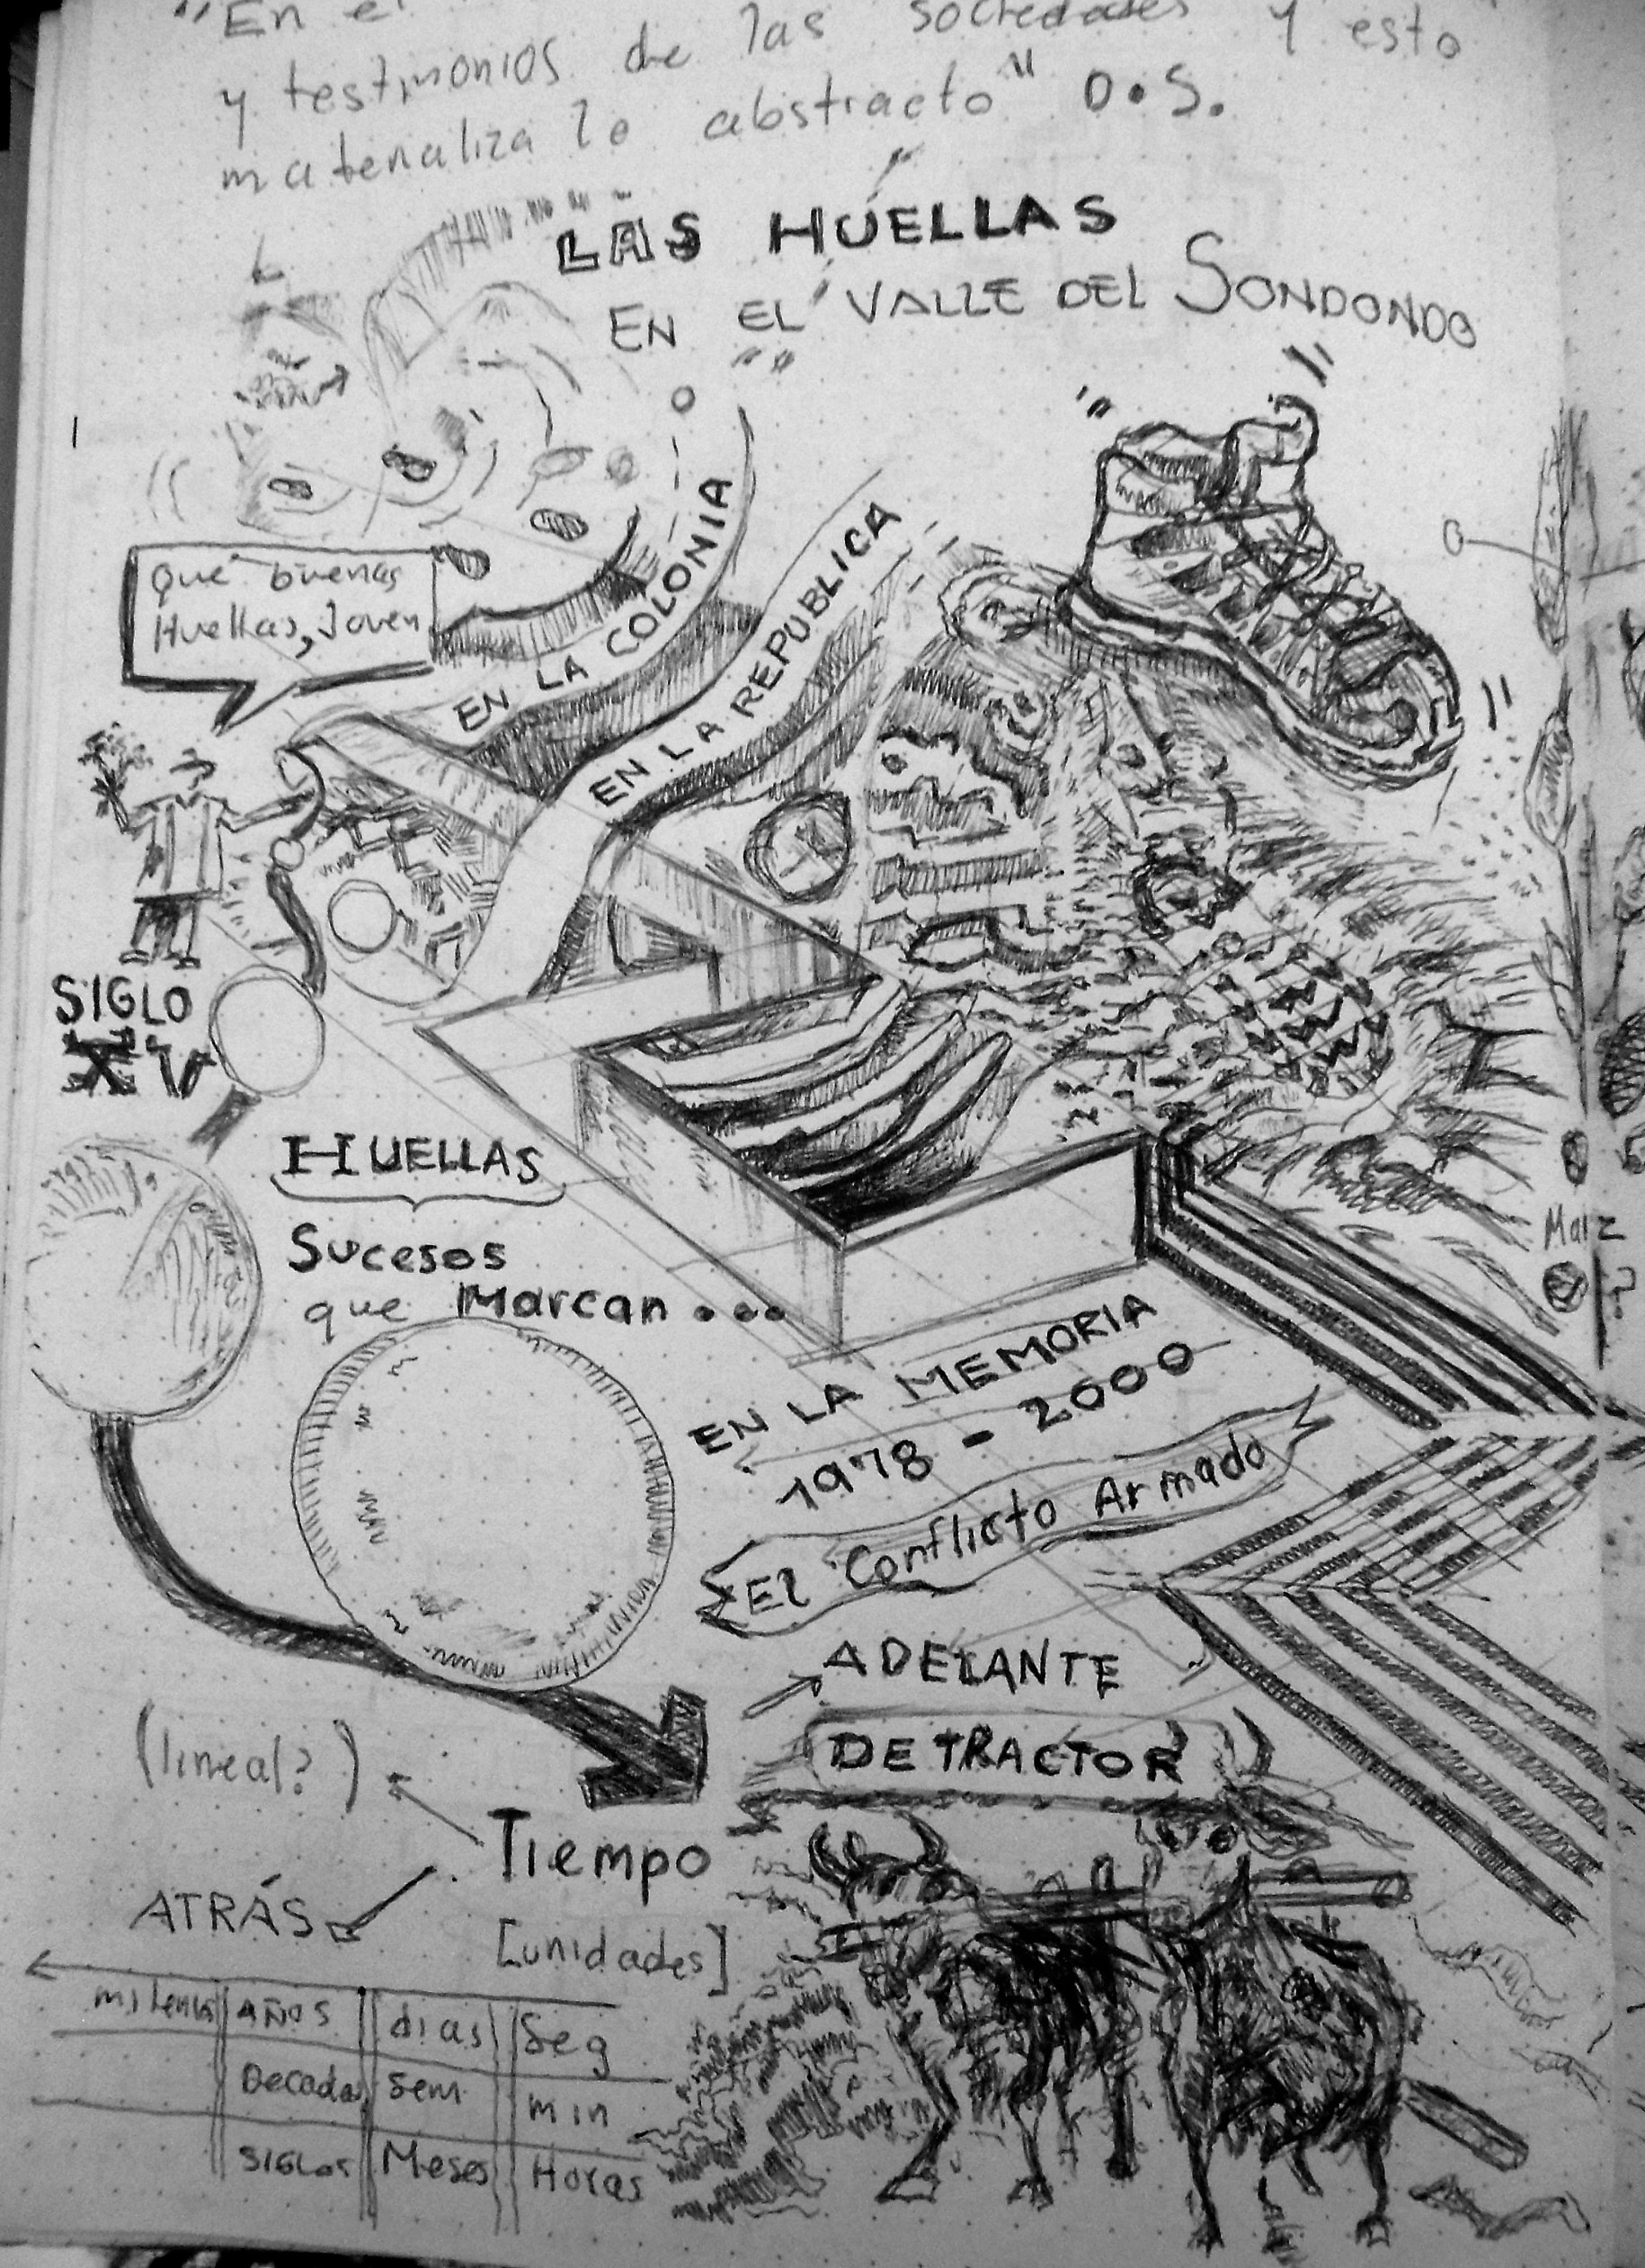 "En e
y testimonios de las sociedades y esto
materializa lo abstracto" D.S.
LAS HUELLAS
EN EL VALLE DEL SONDONDO
Que buenas
Huellas, Joven
EN LA COLONIA
EN LA REPUBLICA
SIGLO
XV
HUELLAS
Sucesos
que Marcan...
Maiz
?
EN LA MEMORIA
1978 - 2000
El Conflicto Armado
ADELANTE
DETRACTOR
(lineal?)
Tiempo
ATRÁS
[unidades]
milenios AÑOS dias Seg
Decadas Sem min
SIGLOS Meses Horas